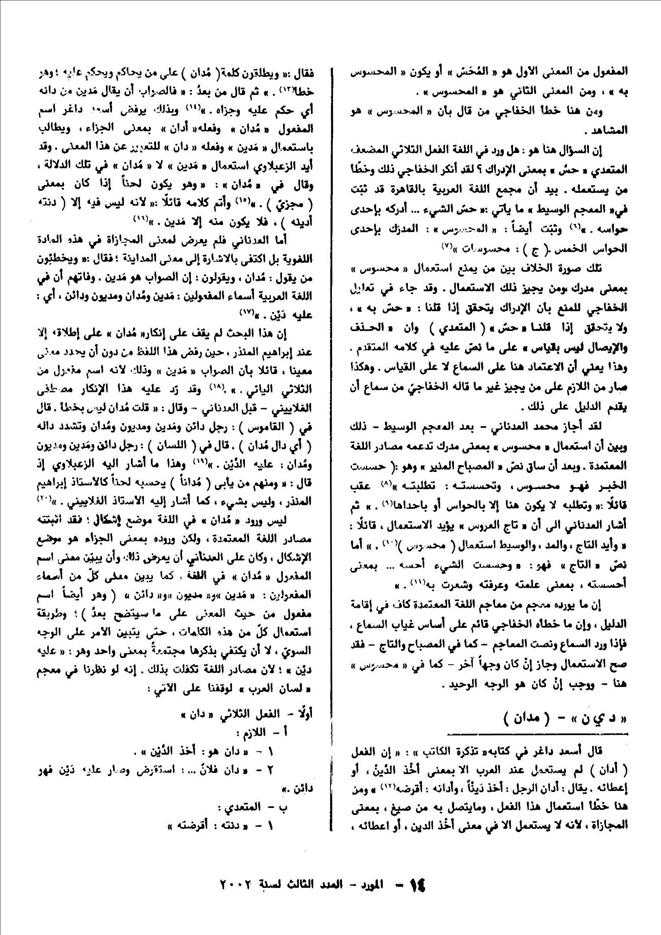 المفعول من المعنى الأول هو « المُحَسّ » أو يكون « المحسوس
به » ، ومن المعنى الثاني هو « المحسوس » .
ومن هنا خطأ الخفاجي من قال بأن « المحسوس » هو
المشاهد .
إن السؤال هنا هو : هل ورد في اللغة الفعل الثلاثي المضعف
المتعدي « حسّ » بمعنى الإدراك ؟ لقد أنكر الخفاجي ذلك وخطّأ
من يستعمله . بيد أن مجمع اللغة العربية بالقاهرة قد ثبّت
في« المعجم الوسيط » ما يأتي :« حسّ الشيء ... أدركه بإحدى
حواسه . »(٦) وثبّت أيضاً : « المحسوس » : المدرَك بإحدى
الحواس الخمس .( ج ) : محسوسات »(٧)
تلك صورة الخلاف بين من يمنع استعمال « محسوس »
بمعنى مدرك ،ومن يجيز ذلك الاستعمال . وقد جاء في تعليل
الخفاجي للمنع بأن الإدراك يتحقق إذا قلنا : « حسّ به » ،
ولا يتحقق إذا قلنا « حسّ » (المتعدي) وان « الحذف
والإيصال ليس بقياس » على ما نصّ عليه في كلامه المتقدم .
وهذا يعني أن الاعتماد هنا على السماع لا على القياس . وهكذا
صار من اللازم على من يجيز غير ما قاله الخفاجي من سماع أن
يقدم الدليل على ذلك .
لقد أجاز محمد العدناني – بعد المعجم الوسيط – ذلك
وبين أن استعمال « محسوس » بمعنى مدرك تدعمه مصادر اللغة
المعتمدة . وبعد أن ساق نصّ « المصباح المنير » وهو :( حسست
الخبر فهو محسوس ، وتحسسته : تطلبته »(٨) عقب
قائلًا :« وتطلبه لا يكون هنا إلا بالحواس أو باحداها(٩) » ثم
أشار العدناني الى أن « تاج العروس » يؤيد الاستعمال ، قائلًا :
« وأيد التاج ، والمد ، والوسيط استعمال ( محسوس )(١٠) . » أما
نصّ « التاج » فهو : « وحسست الشيء أحسه ... بمعنى
أحسسته ، بمعنى علمته وعرفته وشعرت به(١١) . »
إن ما يورده معجم من معاجم اللغة المعتمدة كاف في إقامة
الدليل ، وإن ما خطأه الخفاجي قائم على أساس غياب السماع ،
فإذا ورد السماع ونصت المعاجم – كما في المصباح والتاج – فقد
صح الاستعمال وجاز إنْ كان وجهاً آخر – كما في « محسوس »
هنا – ووجب إنْ كان هو الوجه الوحيد .
« دي ن » – ( مدان )
قال أسعد داغر في كتابه« تذكرة الكاتب » : « إن الفعل
( أدان ) لم يستعمل عند العرب الا بمعنى أخْذ الدَّينُ ، أو
إعطائه . يقال : أدان الرجل : أخذ دَيناً ، وأدانه : أقرضه(١٢) » ومن
هنا خطّأ استعمال هذا الفعل ، ومايتصل به من صيغ ، بمعنى
المجازاة ، لأنه لا يستعمل الا في معنى أخْذ الدين ، أو اعطائه ،
فقال :« ويطلقون كلمة( مُدان ) على من يحاكم ويحكم عليه ؛ وهو
خطأ(١٣) . » ثم قال من بعدُ : « فالصواب أن يقال مَدين من دانه
أي حكم عليه وجزاه . »(١٤) وبذلك يرفض أسعد داغر اسم
المفعول « مُدان » وفعله« أدان » بمعنى الجزاء ، ويطالب
باستعمال « مَدين » وفعله « دان » للتعبير عن هذا المعنى . وقد
أيد الزعبلاوي استعمال « مَدين » لا « مُدان » في تلك الدلالة ،
وقال في « مُدان » : « وهو يكون لحناً إذا كان بمعنى
( مجزيّ ) . »(١٥) وأتم كلامه قائلًا : « لأنه ليس فيه إلا ( دنته
أدينه ) ، فلا يكون منه إلا مَدين . »(١٦)
أما العدناني فلم يعرض لمعنى المجازاة في هذه المادة
اللغوية بل اكتفى بالاشارة إلى معنى المداينة ؛ فقال : « ويخطئون
من يقول : مُدان ، ويقولون : إن الصواب هو مَدين . وفاتهم أن في
اللغة العربية أسماء المفعولين : مَدين ومُدان ومديون ودائن ، أي :
عليه دَيْن . »(١٧)
إن هذا البحث لم يقف على إنكار« مُدان » على إطلاقه إلا
عند إبراهيم المنذر ، حين رفض هذا اللفظ من دون أن يحدد معنى
معيناً ، قائلًا بأن الصواب « مَدين » وذلك لأنه اسم مفعول من
الثلاثي اليائي . »(١٨) وقد رَد عليه هذا الإنكار مصطفى
الغلاييني – قبل العدناني – وقال : « قلت مُدان ليس بخطأ . قال
في ( القاموس ) : رجل دائن ومَدين ومديون ومُدان وتشدد داله
( أي دال مُدان ) . قال في ( اللسان ) : رجل دائن ومَدين ومديون
ومُدان : عليه الدَّيْن . »(١٩) وهذا ما أشار اليه الزعبلاوي إذ
قال : « ومنهم من يأبى ( مُداناً ) يحسبه لحناً كالأستاذ إبراهيم
المنذر ، وليس بشيء ، كما أشار إليه الأستاذ الغلاييني . »(٢٠)
ليس ورود « مُدان » في اللغة موضع إشكال ؛ فقد اثبتته
مصادر اللغة المعتمدة ، ولكن وروده بمعنى الجزاء هو موضع
الإشكال ، وكان على العدناني أن يعرض ذلك وأن يبيّن معنى اسم
المفعول « مُدان » في اللغة . كما يبين معنى كلّ من أسماء
المفعولين : « مَدين »و« مديون »و« دائن » ( وهو أيضاً اسم
مفعول من حيث المعنى على ما سيتضح بعدُ ) ؛ وطريقة
استعمال كلّ من هذه الكلمات ، حتى يتبين الأمر على الوجه
السويّ ، لا أن يكتفي بذكرها مجتمعةً بمعنى واحد وهو : « عليه
ديْن » ؛ لأن مصادر اللغة تكفلت بذلك . إنه لو نظرنا في معجم
« لسان العرب » لوقفنا على الآتي :
أولًا – الفعل الثلاثي « دان »
أ – اللازم :
١ – « دان هو : أخذ الدَّيْن » .
٢ – « دان فلانٌ ... : استقرض وصار عليه دَيْن فهو
دائن . »
ب – المتعدي :
١ – « دنته : أقرضته »
١٤ – المورد – العدد الثالث لسنة ٢٠٠٢